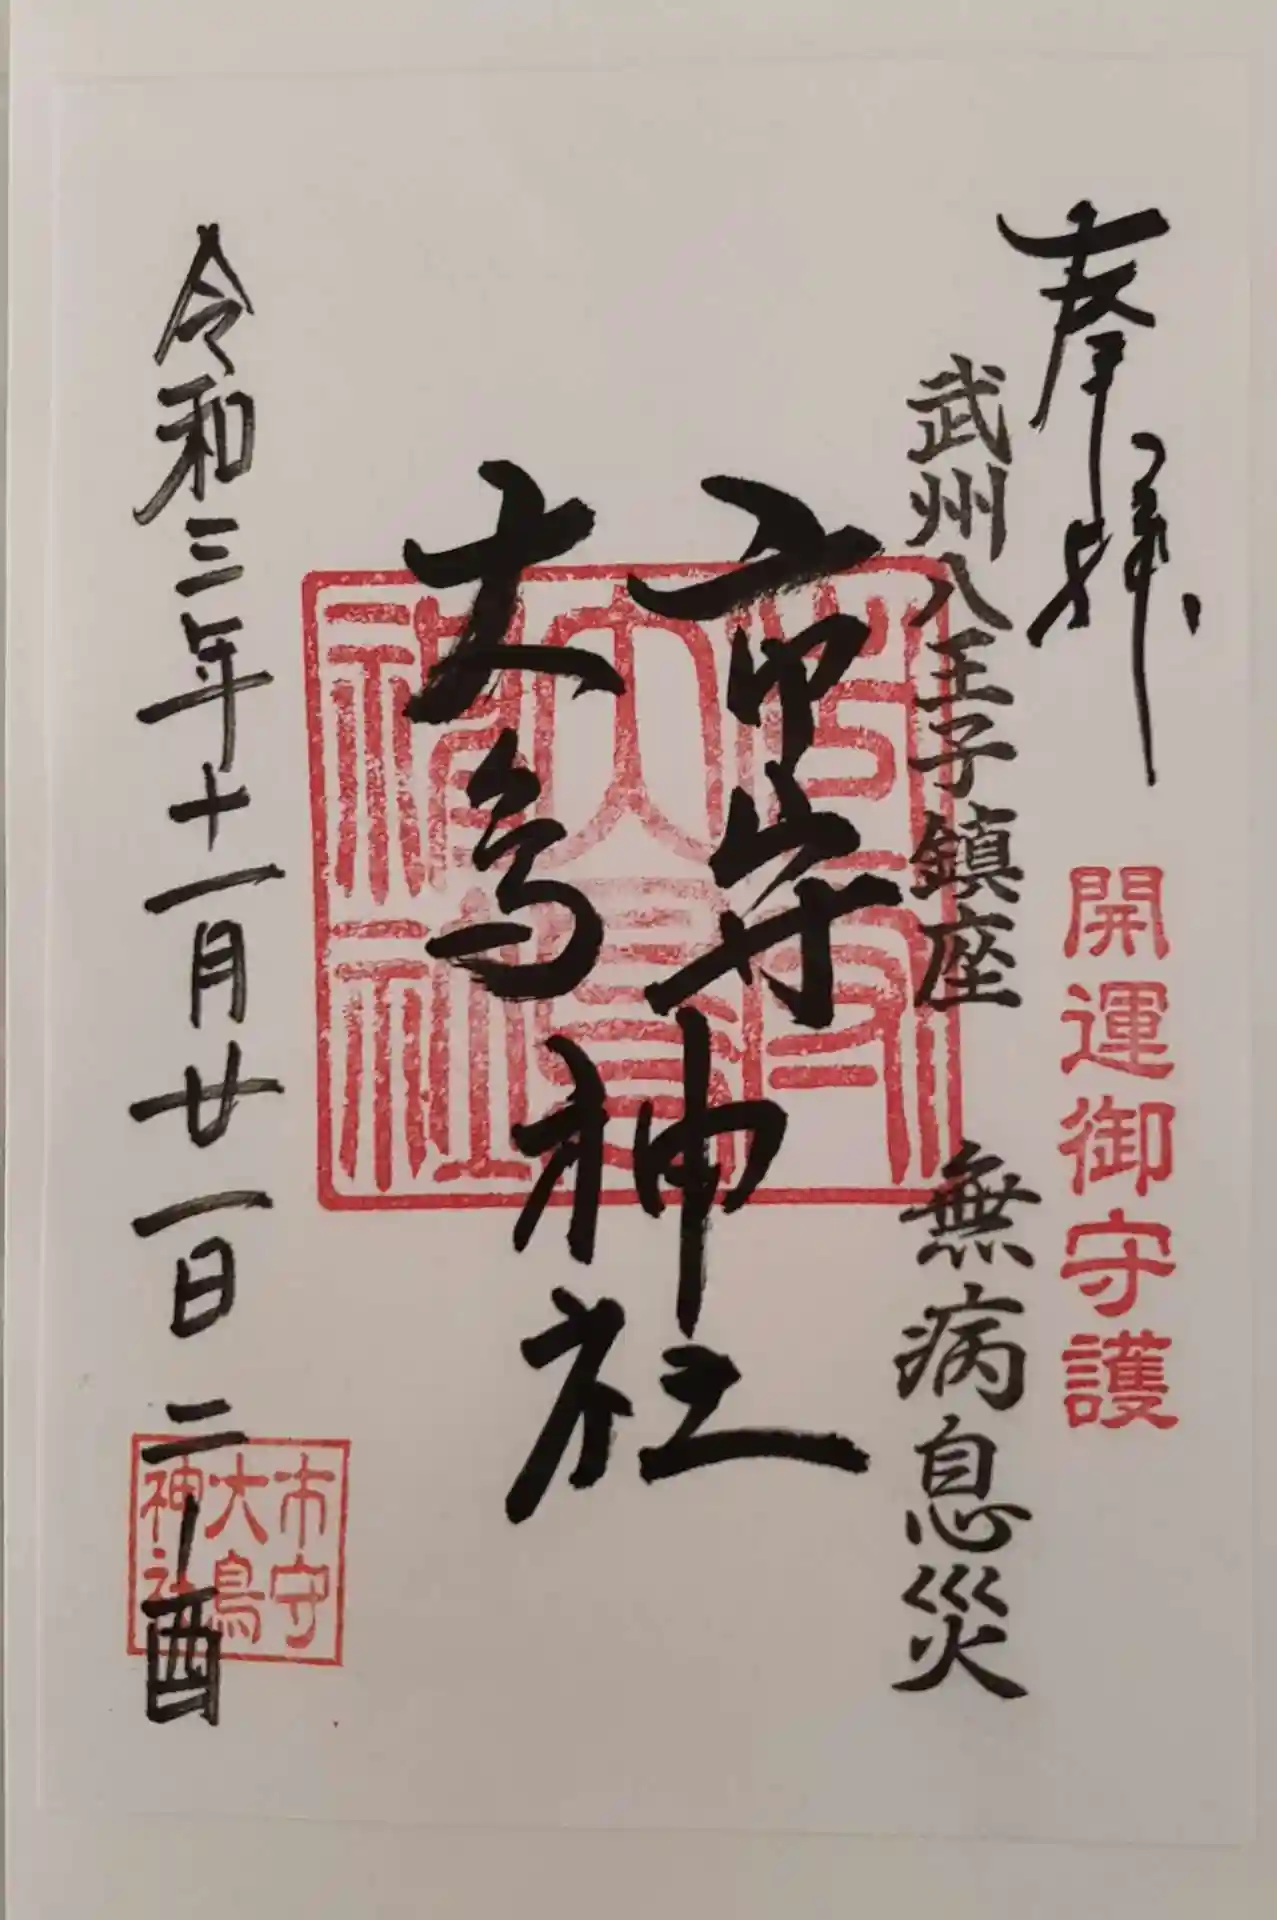 奉拝
開運御守護
武州八王子鎮座 無病息災
市守
大鳥
神社
市守
大鳥
神社
令和三年十一月廿一日 二ノ酉
市守
大鳥
神社